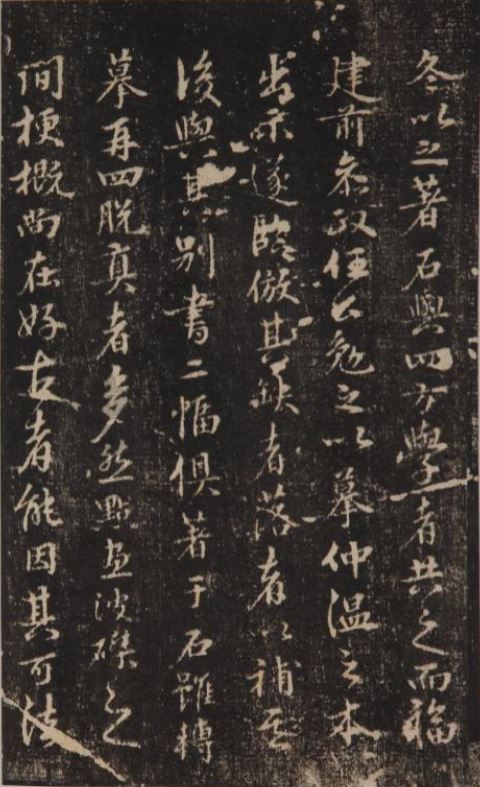 冬以之著石與四方學者共之而福
建前參政任公勉之以摹仲溫之本
出示遂臨倣其缺者落者以補其
後與其別書二幅俱著于石雖轉
摹再四脫真者多然點畫波磔之
間梗概尚在好古者能因其可法